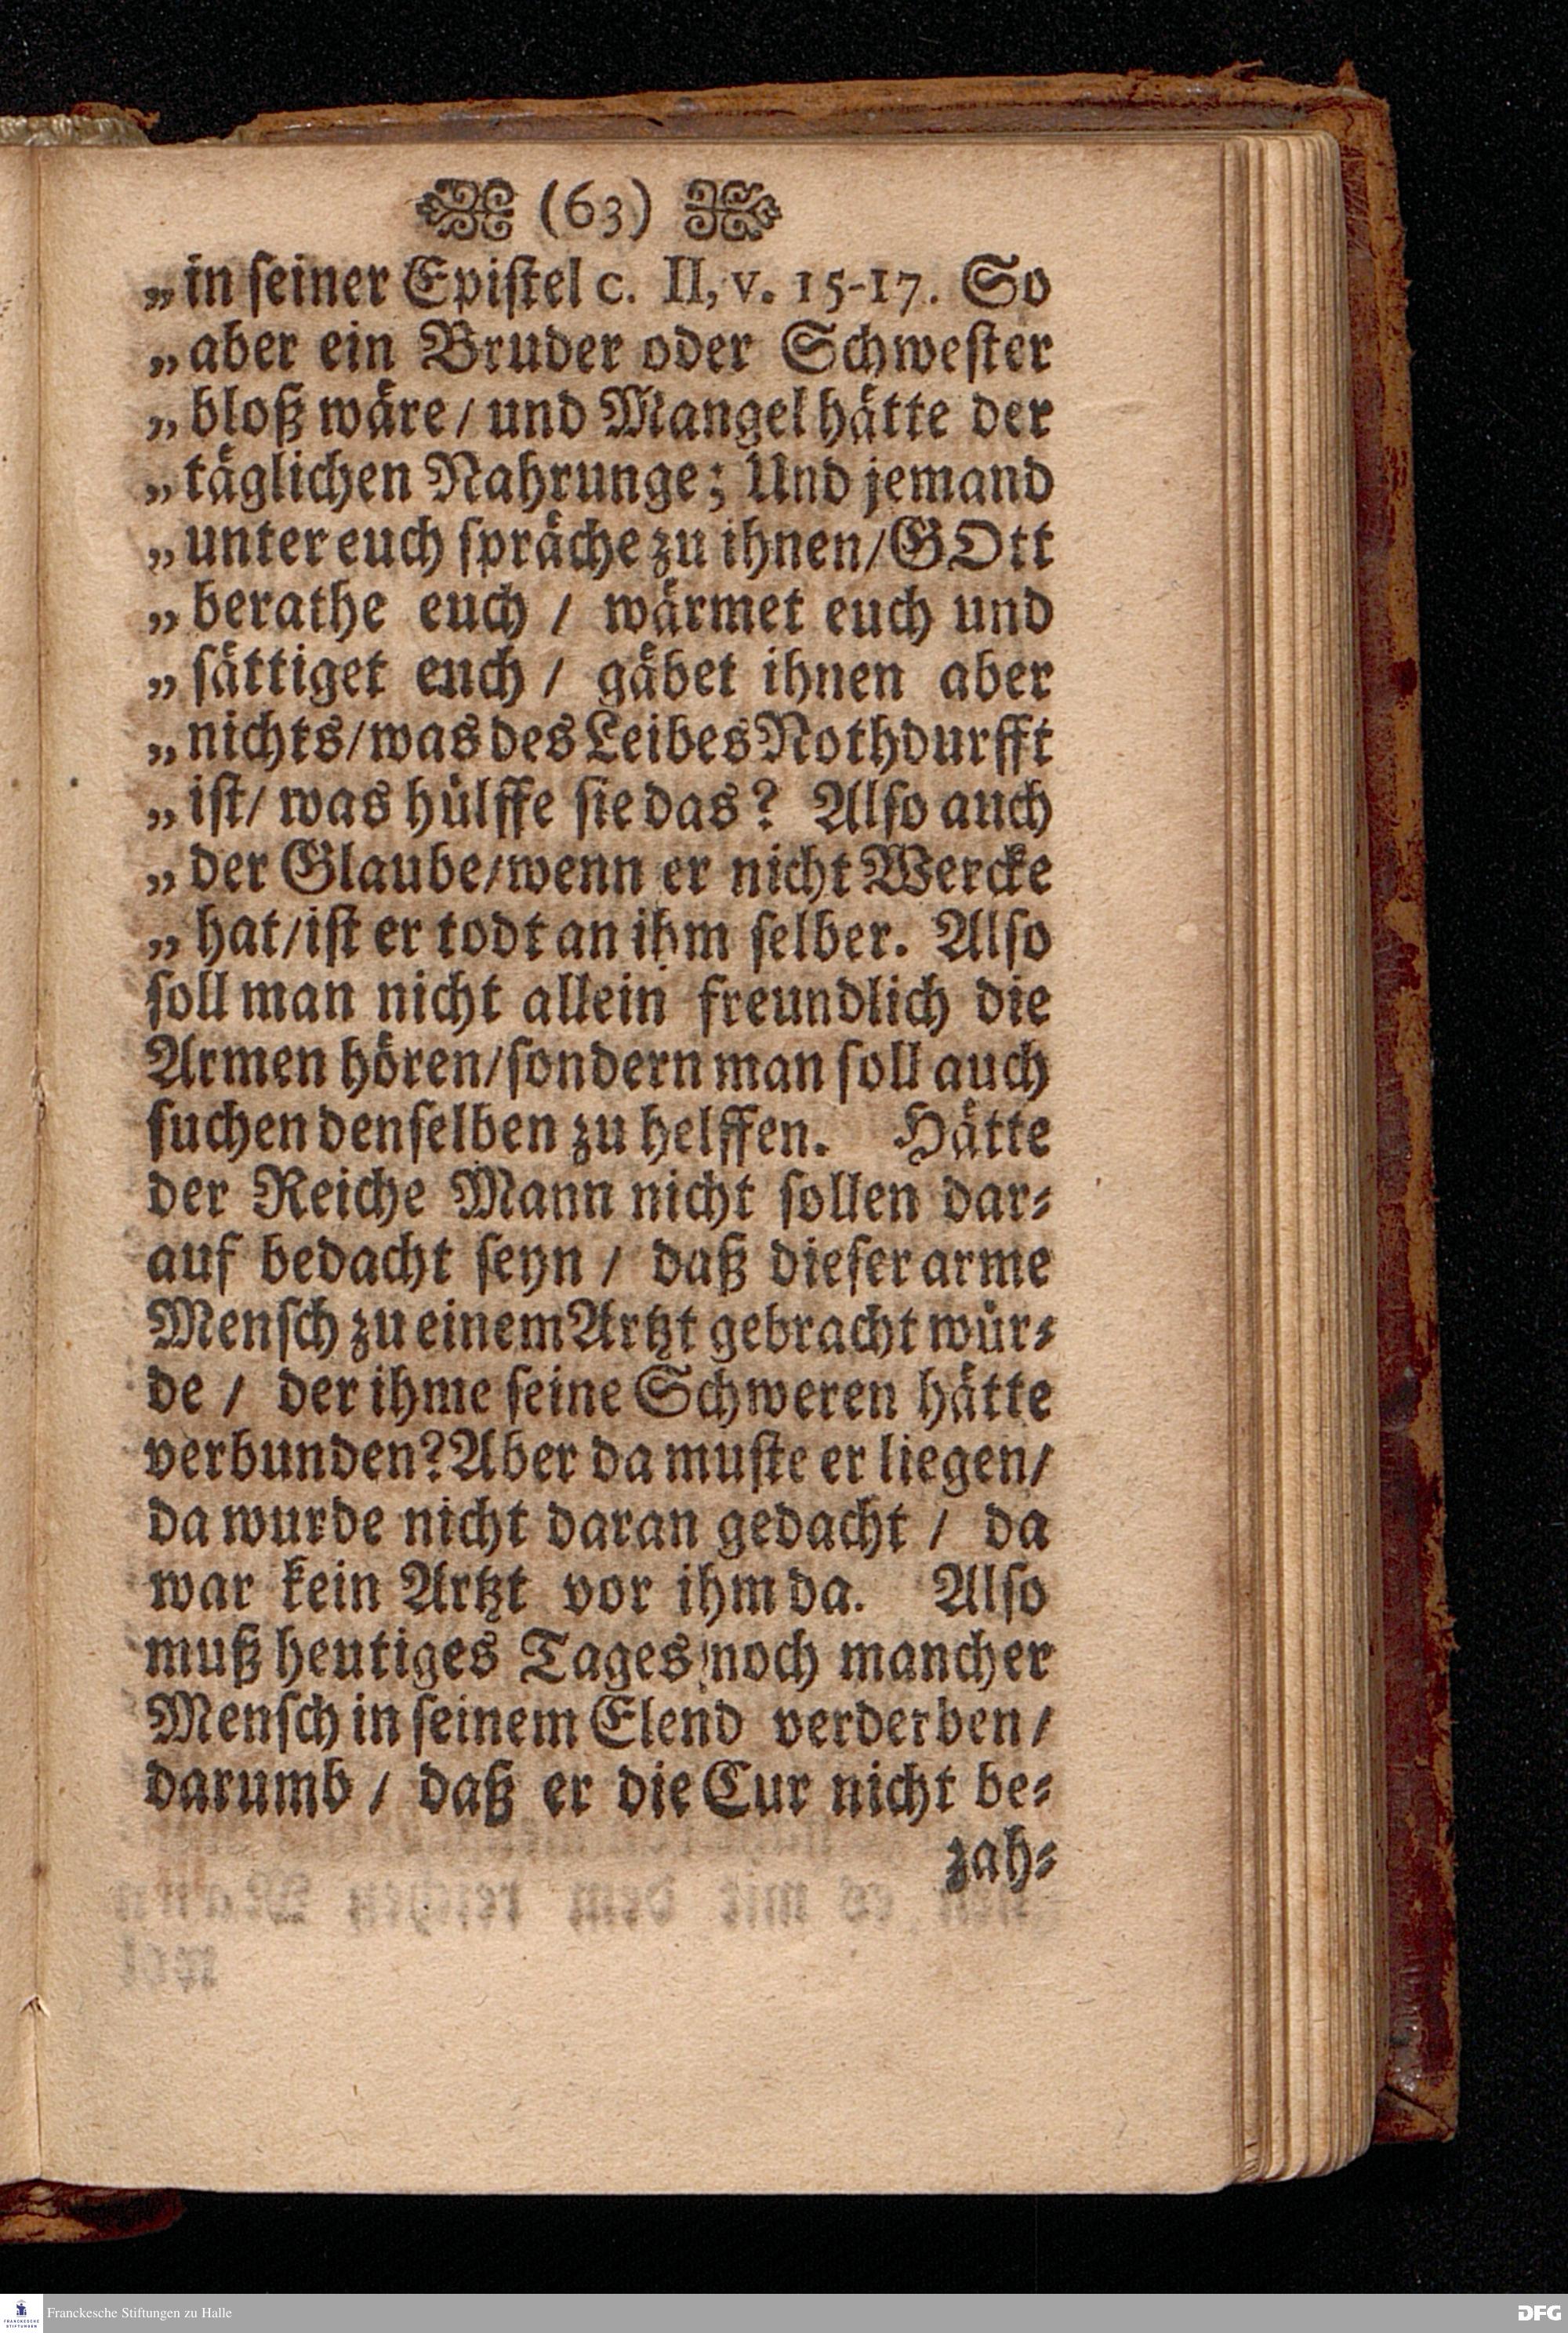 (63)
„in seiner Epistel c. II, v. 15-17. So
„aber ein Bruder oder Schwester
„bloß wäre/ und Mangel hätte der
„täglichen Nahrunge; Und jemand
„unter euch spräche zu ihnen/ GOtt
„berathe euch / wärmet euch und
„sättiget euch / gäbet ihnen aber
„nichts/ was des Leibes Nothdurfft
„ist/ was hülffe sie das? Also auch
„der Glaube/ wenn er nicht Wercke
„hat/ ist er todt an ihm selber. Also
soll man nicht allein freundlich die
Armen hören/ sondern man soll auch
suchen denselben zu helffen. Hätte
der Reiche Mann nicht sollen dar-
auf bedacht seyn / daß dieser arme
Mensch zu einem Artzt gebracht wür-
de / der ihme seine Schweren hätte
verbunden? Aber da muste er liegen/
da wurde nicht daran gedacht / da
war kein Artzt vor ihm da. Also
muß heutiges Tages noch mancher
Mensch in seinem Elend verderben/
darumb / daß er die Cur nicht be-
zah-
Franckesche Stiftungen zu Halle
DFG